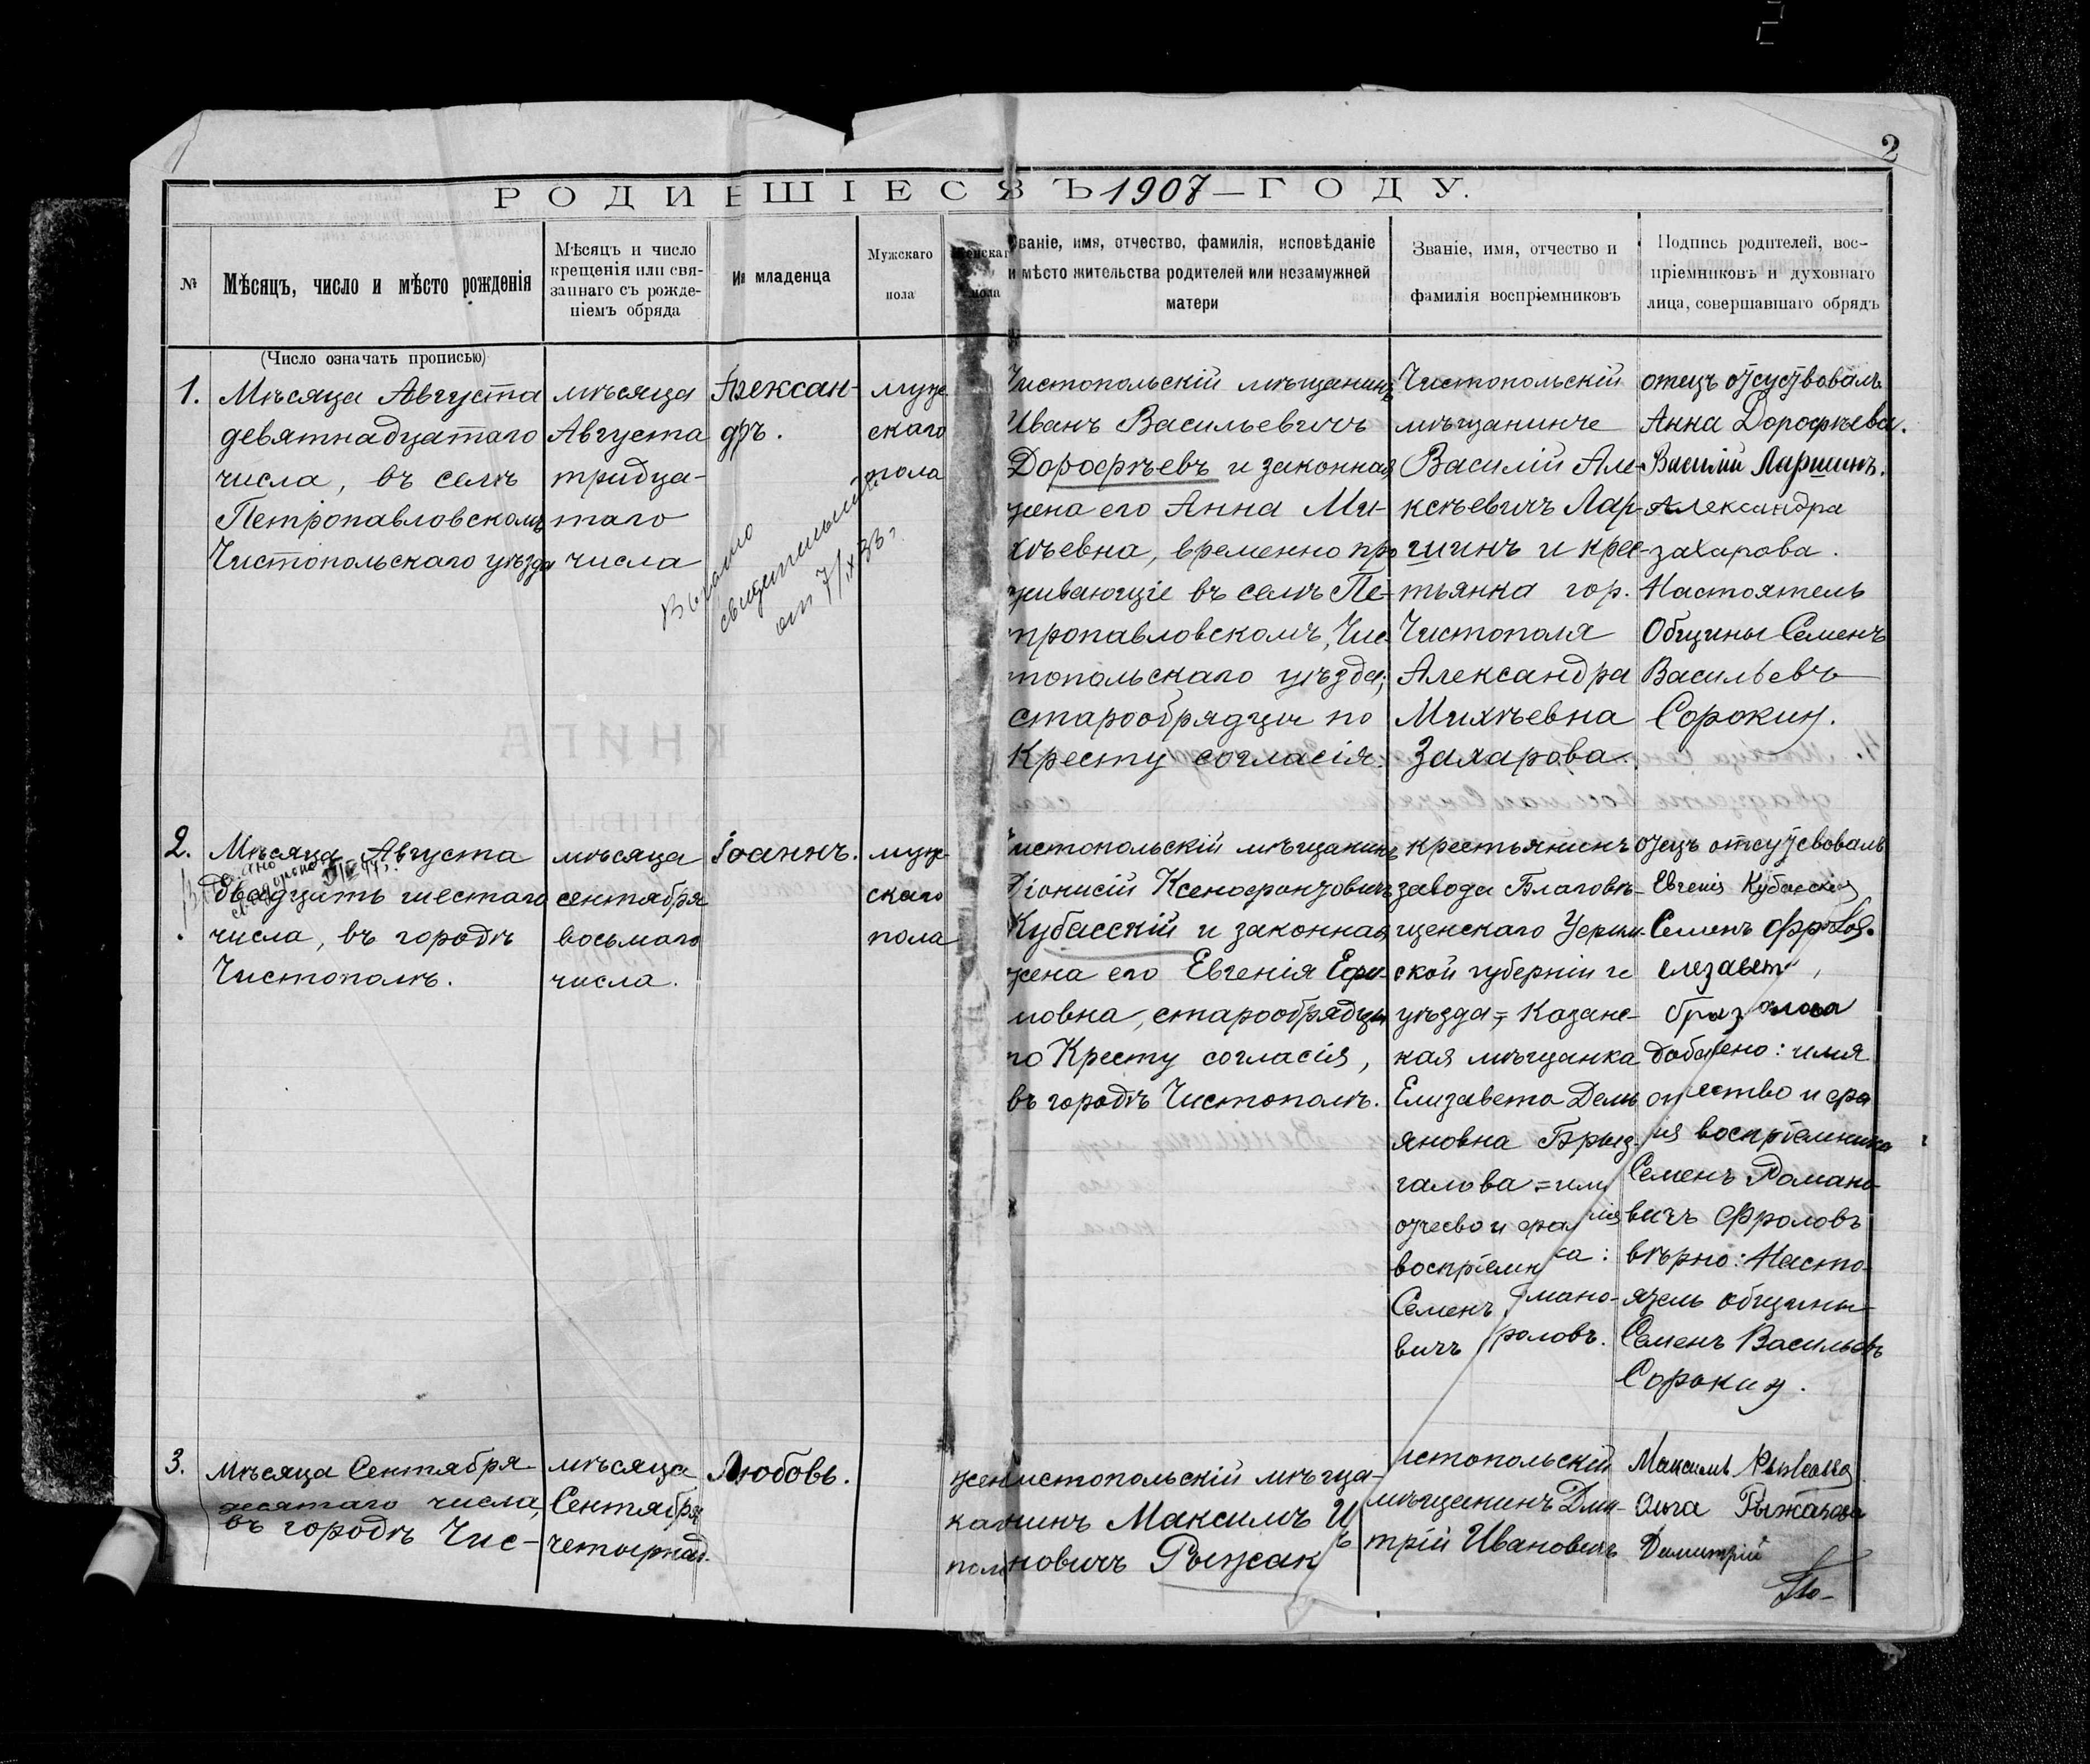 2
РОДИВШІЕСЯ ВЪ 1907 — ГОДУ.
№
Мѣсяцъ, число и мѣсто рожденія
Мѣсяцъ и число
крещенія или свя-
заннаго съ рожде-
ніемъ обряда
Имя младенца
Мужскаго
пола
Женскаго
пола
Званіе, имя, отчество, фамилія, исповѣданіе
и мѣсто жительства родителей или незамужней
матери
Званіе, имя, отчество и
фамилія воспріемниковъ
Подпись родителей, вос-
пріемниковъ и духовнаго
лица, совершавшаго обрядъ
(Число означать прописью)
1.
Мѣсяца Августа
девятнадцатаго
числа, въ селѣ
Петропавловскомъ
Чистопольскаго уѣзда
мѣсяца
Августа
тридца-
таго
числа
Алексан-
дръ.
муж
скаго
пола
Чистопольскій мѣщанинъ
Иванъ Васильевичъ
Дорофѣевъ и законная
жена его Анна Ми-
хѣевна, временно про
живающіе въ селѣ Пе-
тропавловскомъ, Чис
топольскаго уѣзда,
старообрядцы по
Кресту согласія.
Чистопольскій
мѣщанинъ
Василій Але-
ксѣевичъ Лар-
шинъ и крес-
тьянка гор.
Чистополя
Александра
Михѣевна
Захарова.
отецъ отсуствовалъ
Анна Дорофѣева.
Василій Ларшинъ.
Александра
захарова.
Настоятель
Общины Семенъ
Васильевъ
Сорокин.
2.
Мѣсяца Августа
двадцать шестаго
числа, въ городѣ
Чистополѣ.
мѣсяца
сентября
восьмаго
числа.
Іоаннъ.
муж-
скаго
пола
Чистопольскій мѣщанинъ
Діонисій Ксенофонтовичъ
Кубасскій и законная
жена его Евгенія Ефи-
мовна, старообрядцы
по Кресту согласія,
въ городѣ Чистополѣ.
крестьянинъ
завода Благовѣ-
щенскаго Уфим-
ской губерніи и
уѣзда = Казанс-
кая мѣщанка
Елизавета Демь
яновна Брыз-
галова = имя
отчесво и фамилія
воспріемника:
Семенъ Романо-
вичъ Фроловъ.
отецъ отсутсвовалъ
Евгенія Кубасская
Семенъ Фролов.
елезавета
бризгалова
добавлено: имя
отчество и фа
мія воспріемника
Семенъ Романо-
вичъ Фроловъ
вѣрно: Насто-
ятель общины
Семенъ Васильевъ
Сорокин.
3.
мѣсяца Сентября
десятаго числа,
въ городѣ Чис-
мѣсяца
Сентября
четырнад-
Любовь.
женс
каго
пола
Чистопольскій мѣща-
нинъ Максимъ И
новичъ Рыжаковъ
Чистопольскій
мѣщанинъ Дми-
трій Ивановичъ
Максимъ Рыжаковъ
Ольга Рыжакова
Димитрій